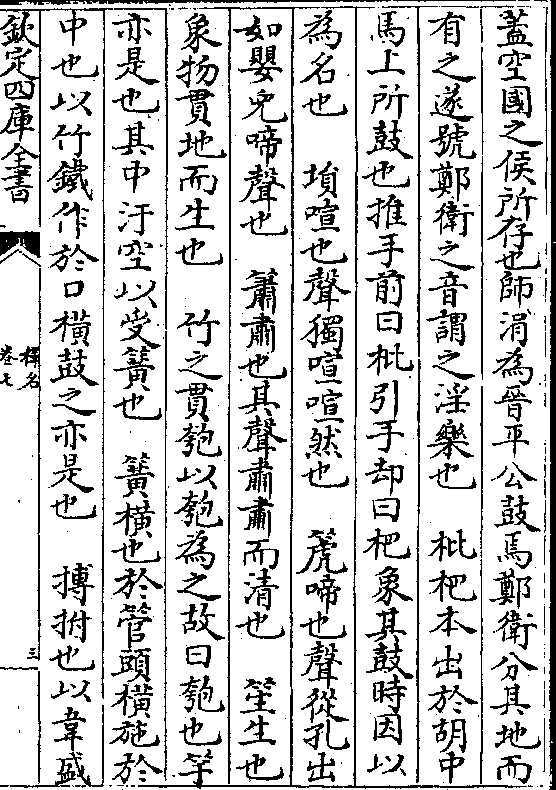 蓋空國之侯所存也師涓為晉平公鼓焉鄭衛分其地而
有之遂號鄭衛之音謂之淫樂也　枇杷本出於胡中
馬上所鼓也推手前曰枇引手却曰杷象其鼓時因以
為名也　塤喧也聲獨喧喧然也　箎啼也聲從孔出
如嬰兒啼聲也　簫肅也其聲肅肅而清也　笙生也
象物貫地而生也　竹之貫匏以匏為之故曰匏也竽
亦是也其中汙空以受簧也　簧橫也於管頭橫施於
中也以竹鐵作於口橫鼓之亦是也　搏拊也以韋盛
欽定四庫全書
釋名
卷七
三